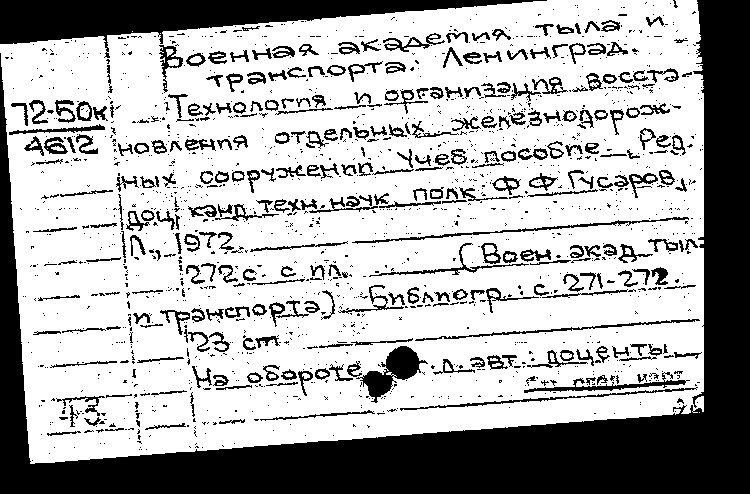 Военная академия тыла и
транспорта. Ленинград.
72-50к
4612
Технология и организация восста-
новления отдельных железнодорож-
ных сооружений. Учеб. пособие. Ред.
доц. канд. техн. наук. полк. Ф Ф. Гусаров.
Л., 1972.
272 с. с ил. (Воен. акад. тыла
и транспорта) Библиогр.: с. 271-272.
23 см.
На обороте т. л. авт.: доценты
См. след. карт
43